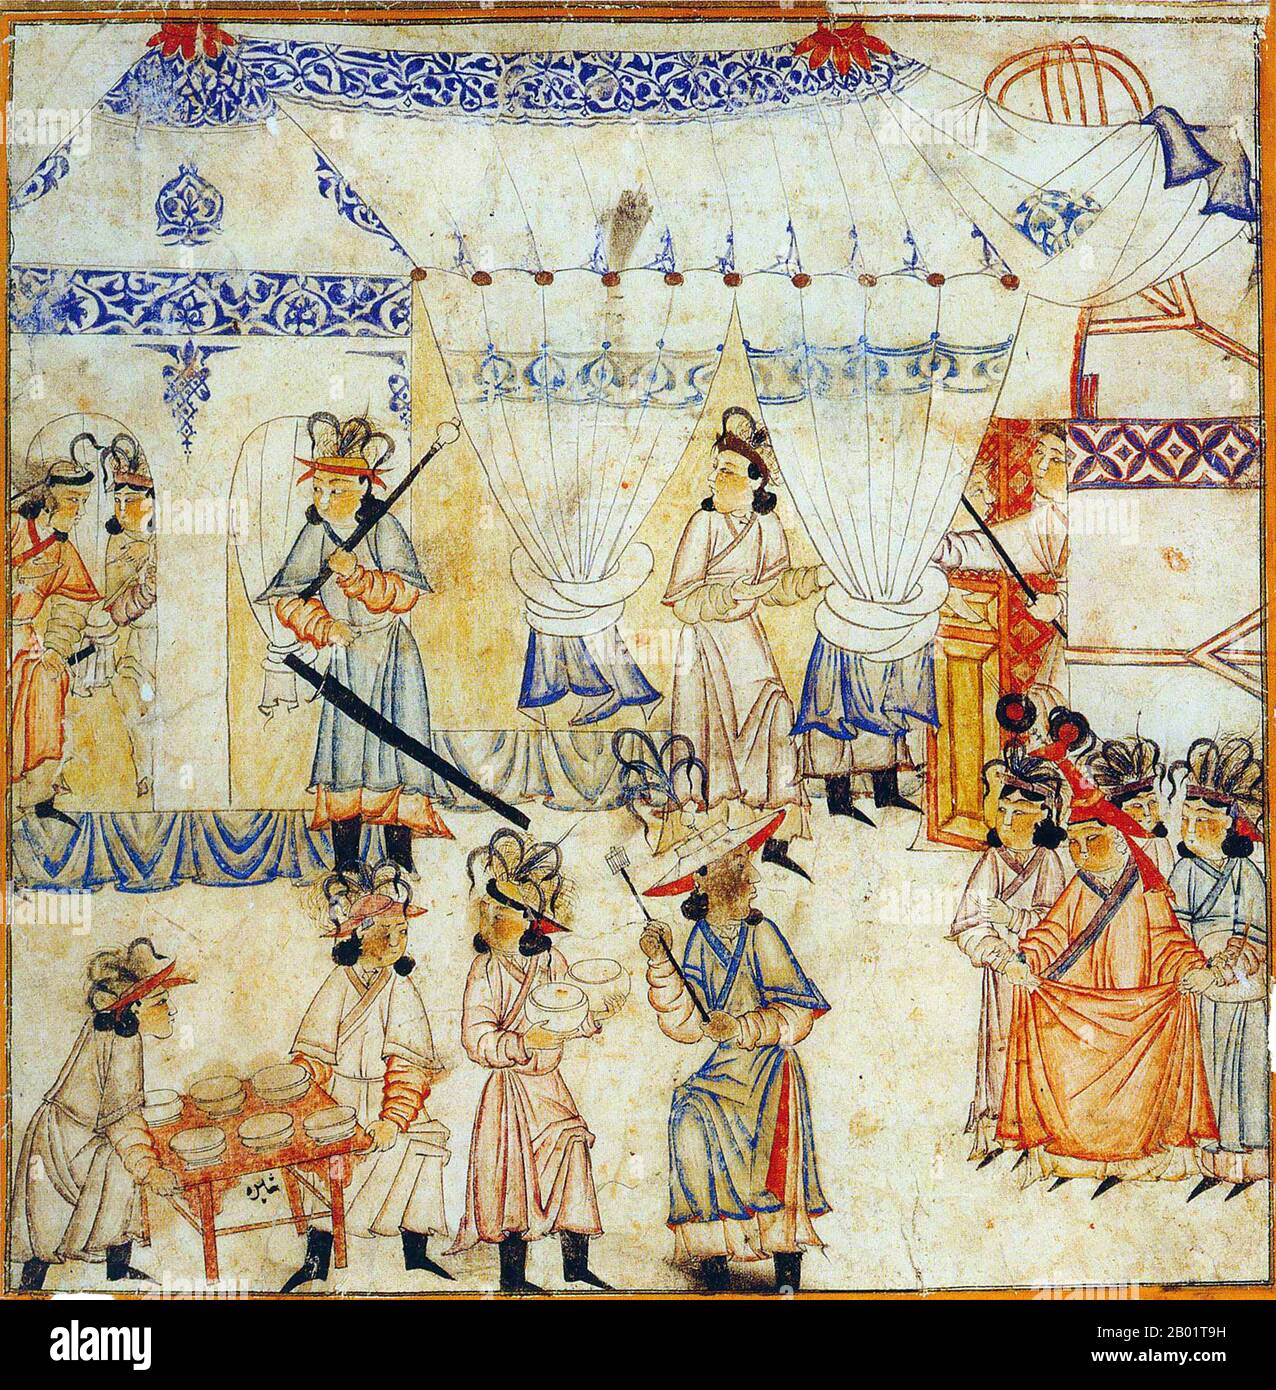 alamy
Image ID: 2B01T9H
www.alamy.com